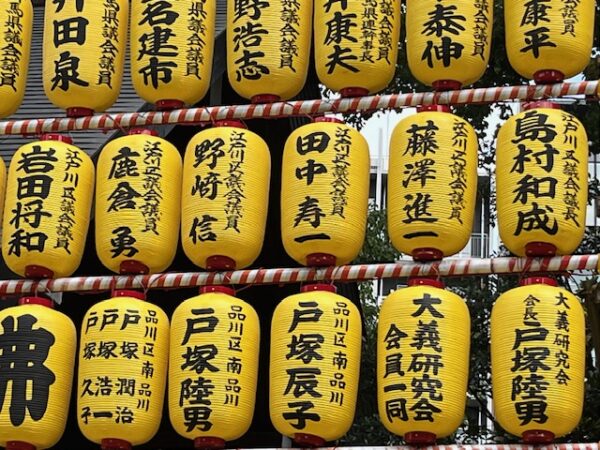 議会議員
井田泉
県議会議員
名建市
議会議員
野浩志
幹事長
井康夫
議会議員
泰伸
議会議員
康平
江戸川区議会議員
岩田将和
江戸川区議会議員
鹿倉勇
江戸川区議会議員
野﨑信
江戸川区議会議員
田中寿一
江戸川区議会議員
藤澤進一
江戸川区議会議長
島村和成
品川区南品川
戸塚潤治
戸塚浩一
戸塚久子
品川区南品川
戸塚陸男
品川区南品川
戸塚辰子
大義研究会
会員一同
大義研究会
会長戸塚陸男